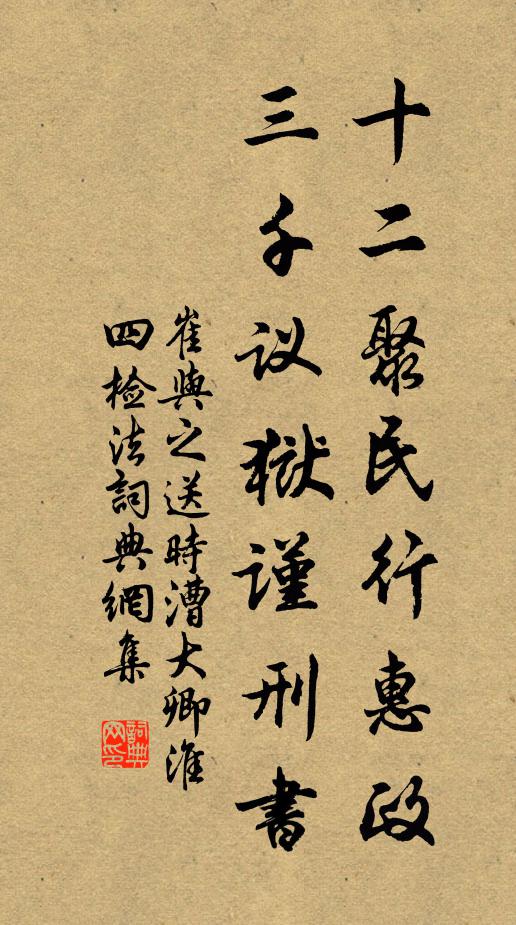 十二聚民行惠政
三千议狱谨刑書
崔與之送時漕大卿淮
四檢法詞典網集
詞典網印